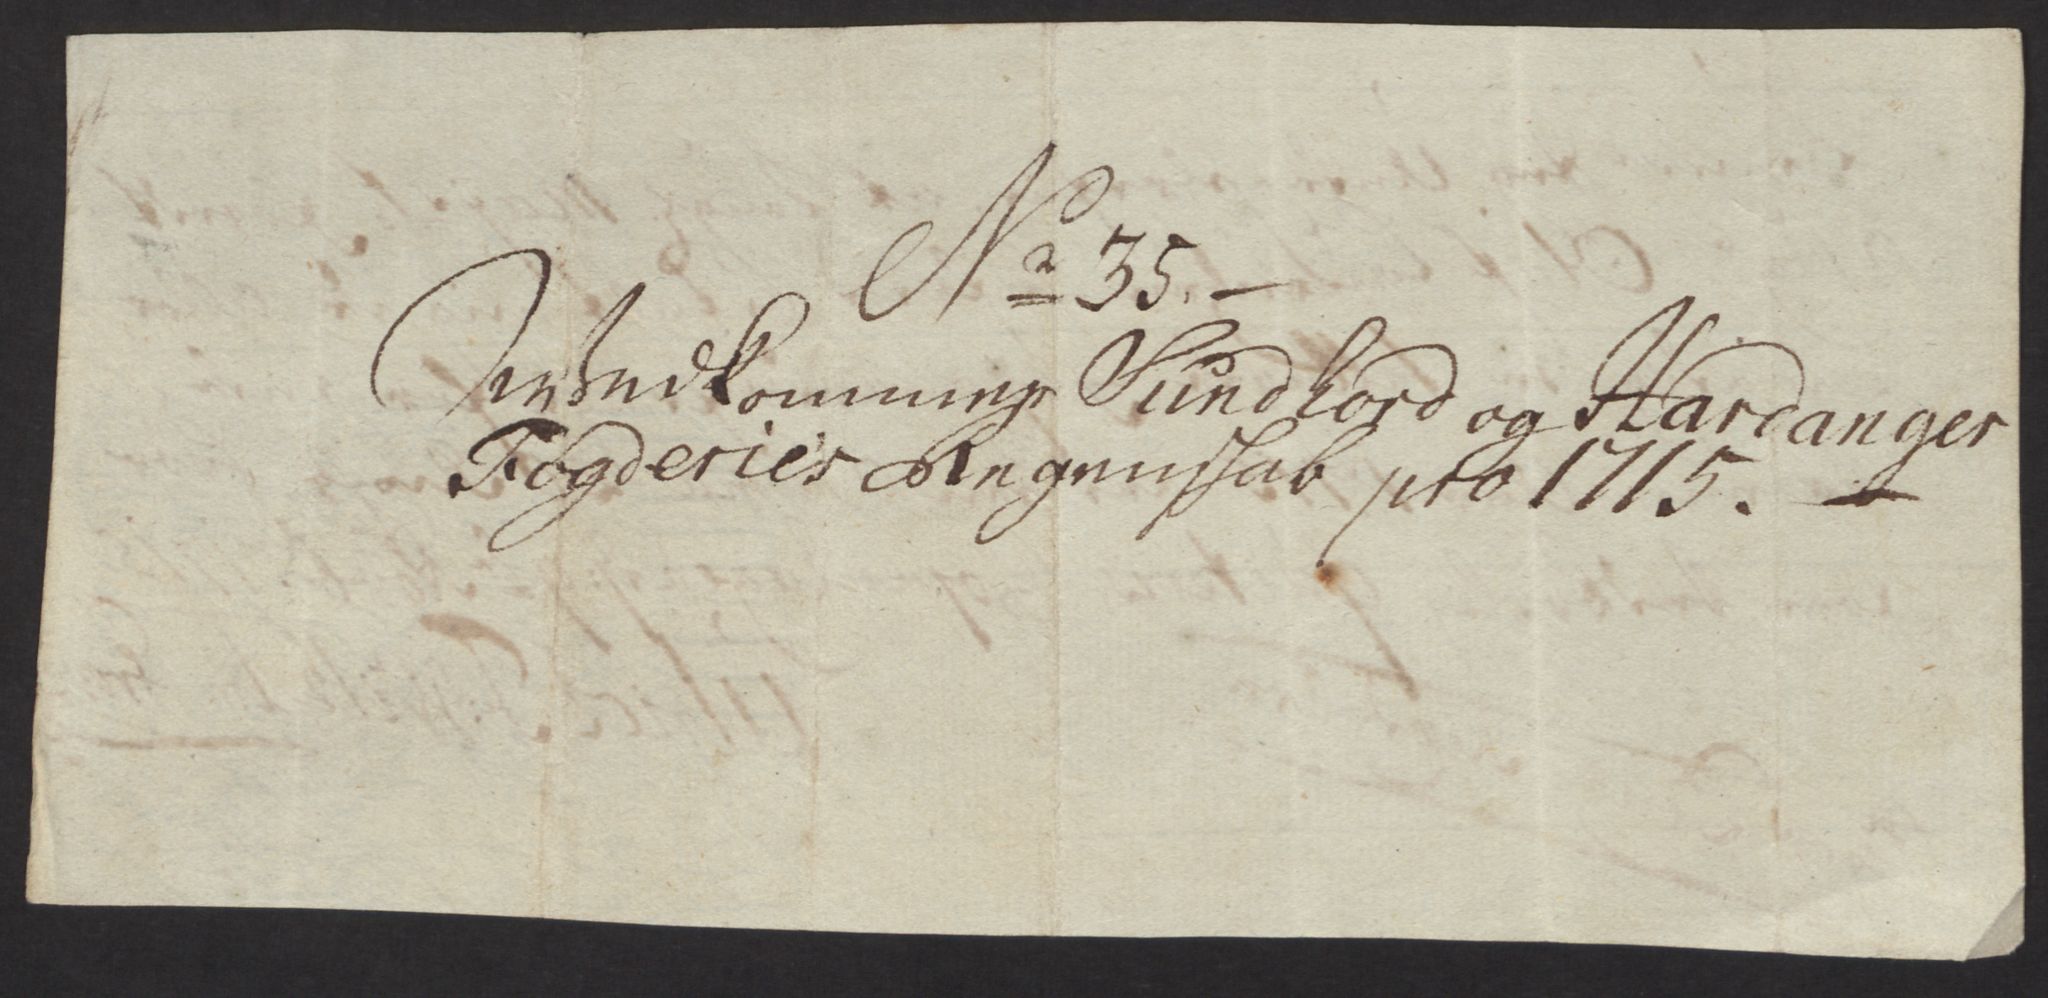 No 35.
Vedkommer Sundhord og Hardanger
Fogderies Regenskab pro 1715.